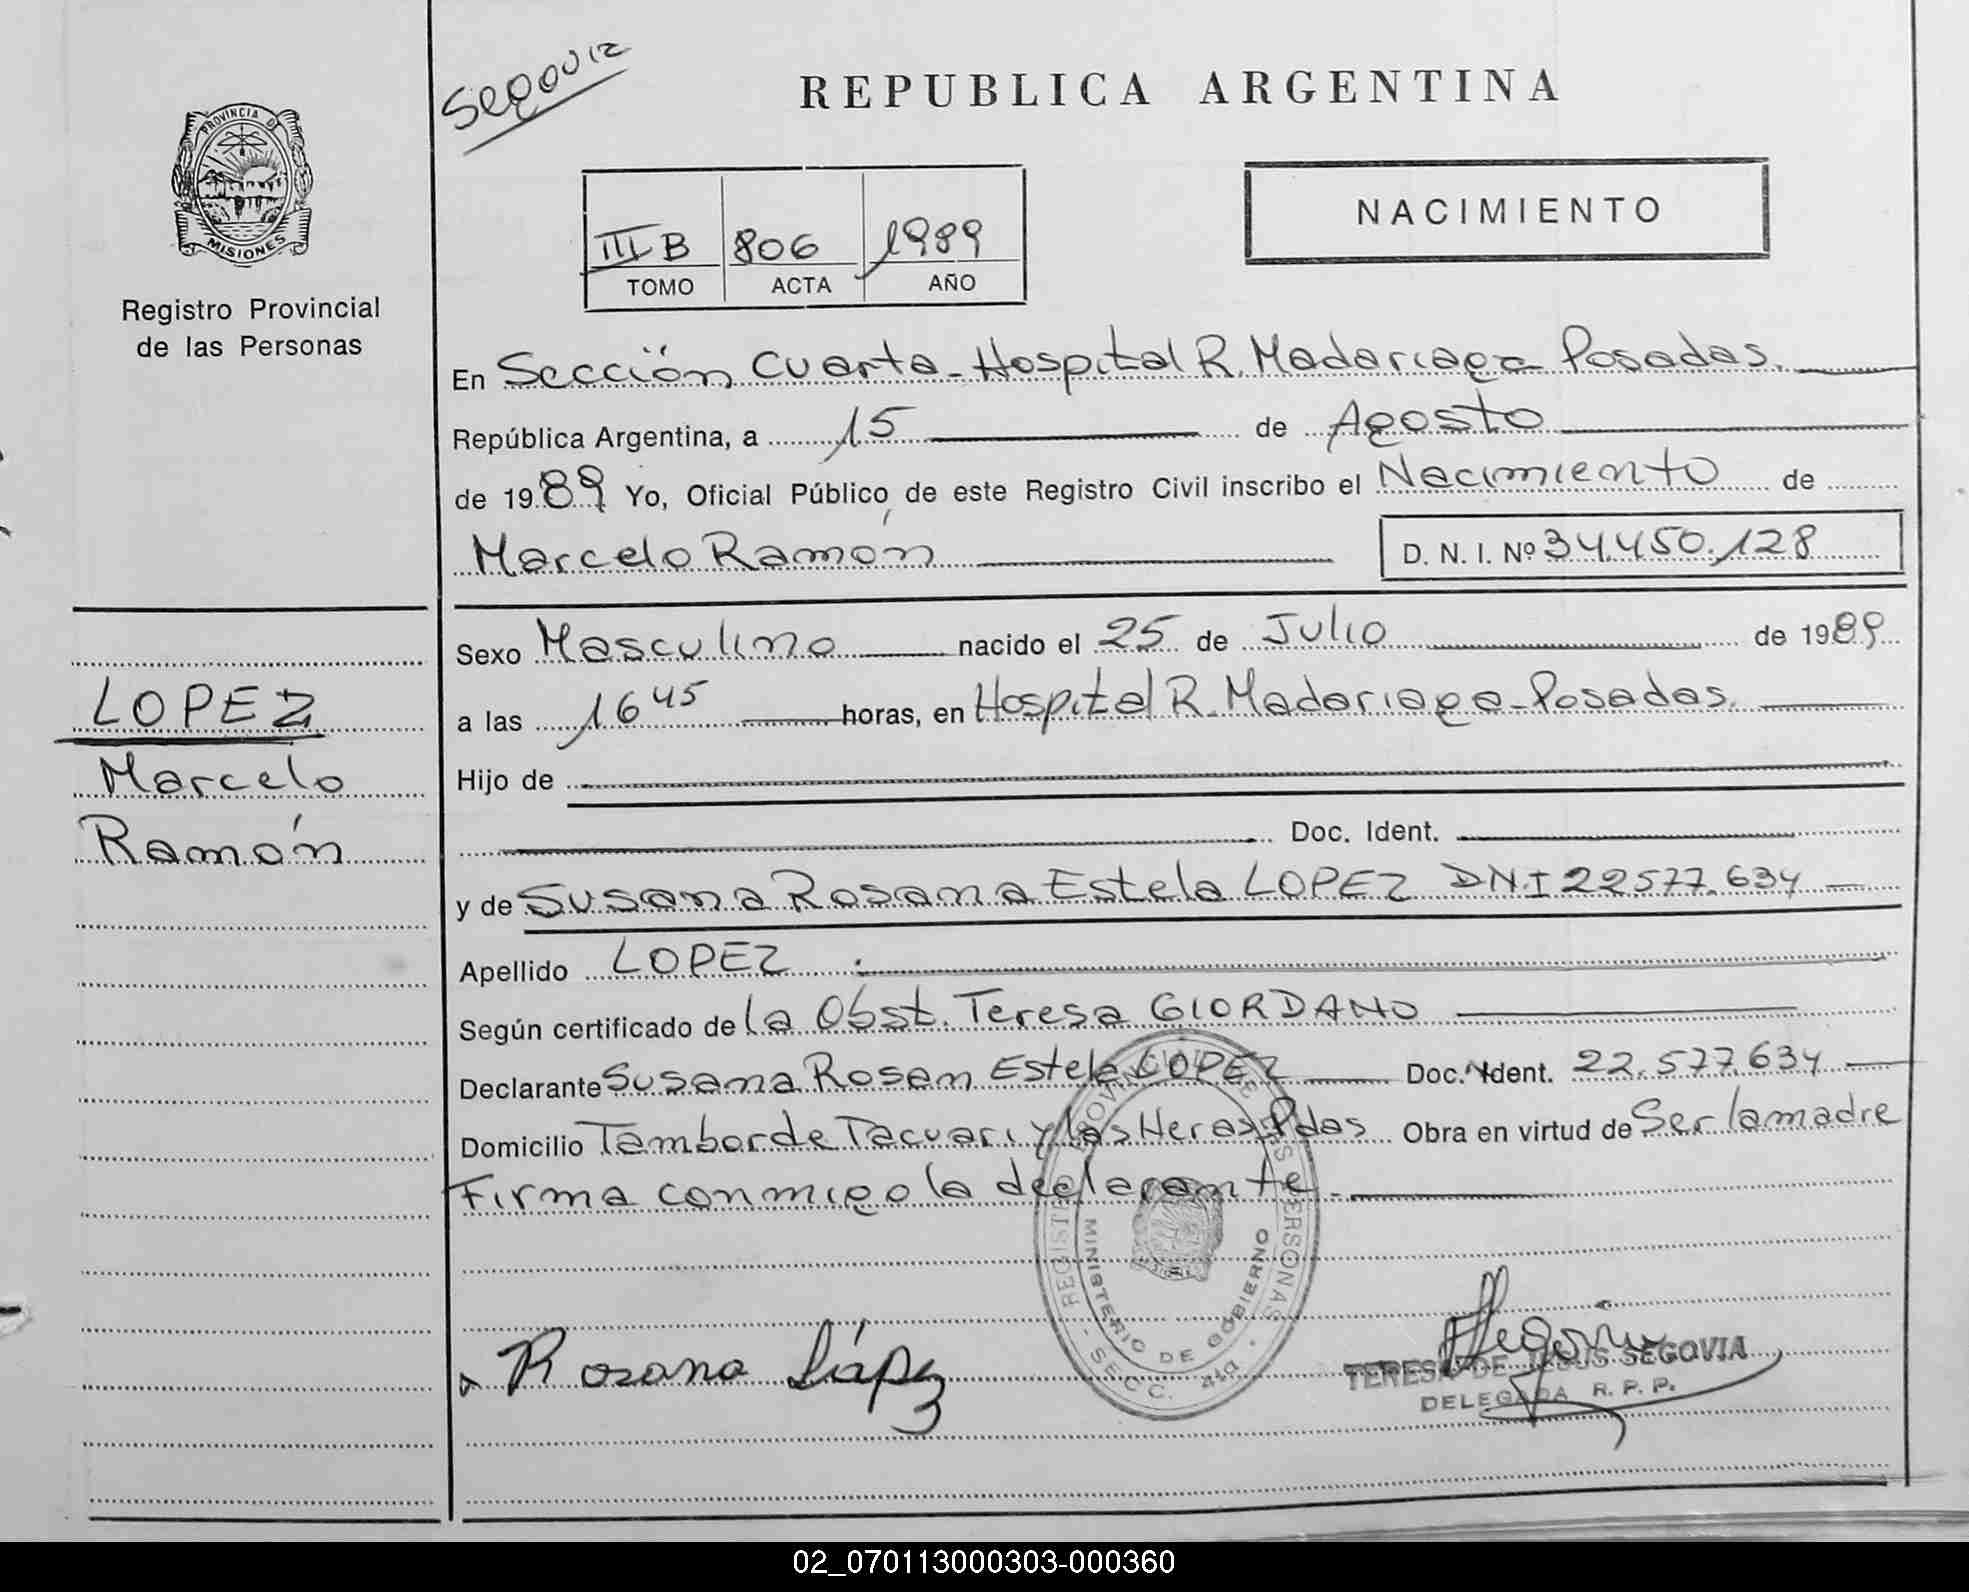 Segovia
REPUBLICA ARGENTINA
PROVINCIA DE
MISIONES
Registro Provincial
de las Personas
NACIMIENTO
III B 806 1989
TOMO ACTA AÑO
En Sección Cuarta - Hospital R. Madariaga Posadas.
República Argentina, a 15 de Agosto
de 1989 Yo, Oficial Público de este Registro Civil inscribo el Nacimiento de
Marcelo Ramón D. N. I. Nº 34.450.128
Sexo Masculino nacido el 25 de Julio de 1989
a las 16 45 horas, en Hospital R. Madariaga - Posadas.
Hijo de
Doc. Ident.
y de Susana Rosana Estela LOPEZ DNI 22577.634
Apellido LOPEZ.
Según certificado de la Obst. Teresa GIORDANO
Declarante Susana Rosan Estela LOPEZ Doc. Ident. 22.577.634
Domicilio Tambor de Tacuari y las Heras Pdas Obra en virtud de Ser la madre
Firma conmigo la declarante.
LOPEZ
Marcelo
Ramón
REGISTRO PROVINCIAL DE LAS PERSONAS
MINISTERIO DE GOBIERNO
- SECC. 4ta -
Rosana López
TERESA DE JESUS SEGOVIA
DELEGADA R. P. P.
02_070113000303-000360